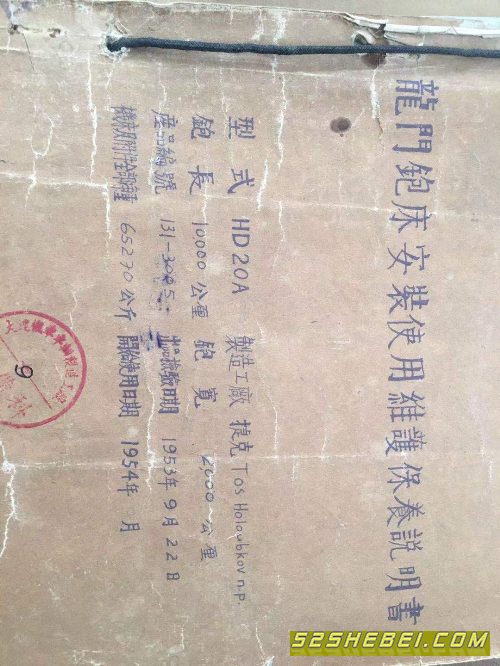 龍門鉋床安裝使用維護保養説明書
型式 HD20A 製造工廠 捷克 Tos Holoubkov n.p.
鉋長 10,000 公厘 鉋寬 2000 公厘
產品編號 131-3005 出品檢驗日期 1953年9月22日
機床附件全部種 65270 公斤 開始使用日期 1954年 月
9
52SHEBEI.COM